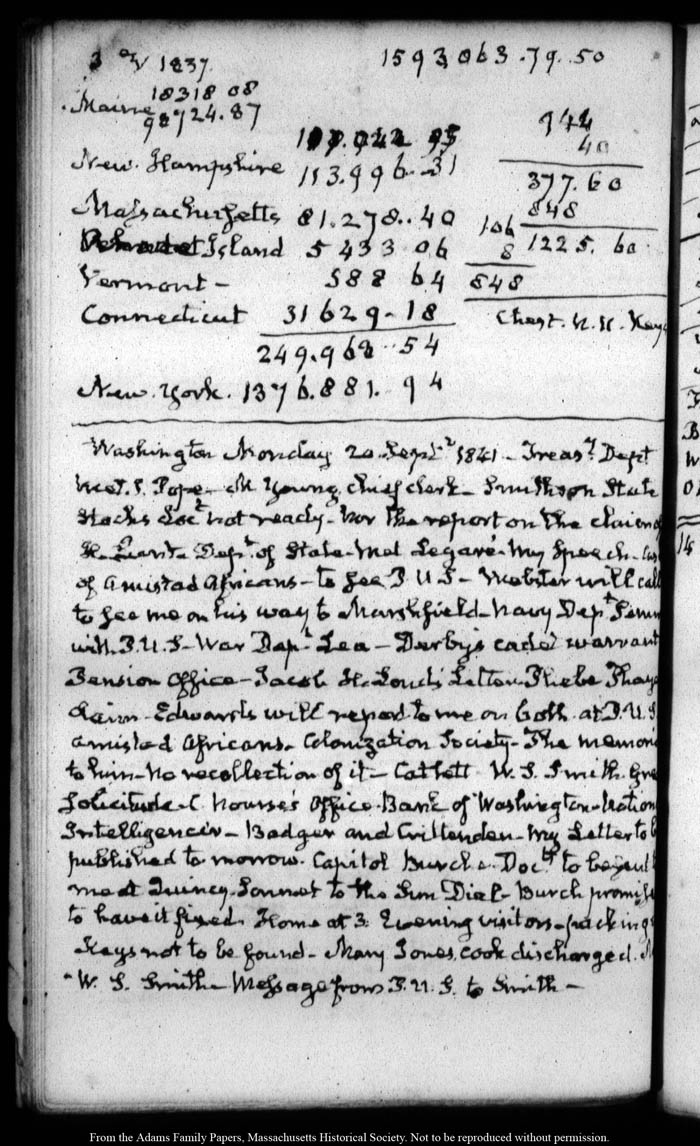 1837 1593063.79.50
18318 08
Maine 98724.87
944
40
New. Hampshire 153.996.31 377.60
Massachusetts 81.278..40 106 848
Island 5 433 06 8 1225. 60
Vermont - 588 64 848
Connecticut 31629.18 Chest. N.H. Keys
249.968..54
New. York. 1376.881. 94
Washington Monday 20. Septr. 1841 - Treasy. Dept
Pope - M Young chief clerk - Smithson State
Stocks Doct. not ready - nor the report on the claim of
Dept. of State - met Legaré - my Speech - Case
of Amistad Africans - to see P. U. S - Webster will call
to see me on his way to Marshfield - Navy Dept.
with P. U. S - War Dept. Lea - Derby's cadet warrant
Pension Office - Jacob H. Loud's Letter - Phebe Thaye
claim - Edwards will report to me on both - at P. U. S
Amistad Africans - Colonization Society - The memori
to him - no recollection of it - Catlett W. S. Smith. Gre
Solicitude - C Nourse's Office - Bank of Washington - Nation
Intelligencer - Badger and Crittenden - my Letter to b
published to morrow. Capitol Burch - Docts. to be sent
me at Quincy - Sonnet to the Sun Dial - Burch promise
to have it fixed. Home at 3. Evening visitors - packing
Keys not to be found - Mary Jones, cook discharged.
W. S. Smith - Message from P. U. S. to Smith -
From the Adams Family Papers, Massachusetts Historical Society. Not to be reproduced without permission.